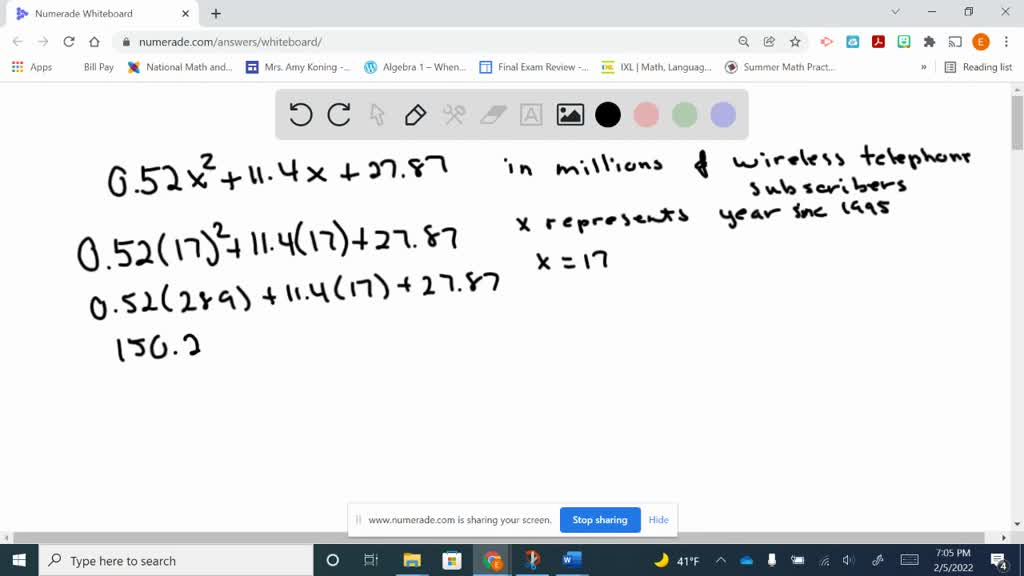 Numerade Whiteboard
numerade.com/answers/whiteboard/
Apps Bill Pay National Math and... Mrs. Amy Koning -... Algebra 1 – When... Final Exam Review -... IXL | Math, Languag... Summer Math Pract... » Reading list
0.52x² + 11.4x + 27.87 in millions of wireless telephone
subscribers
0.52(17)² + 11.4(17) + 27.87 x represents year sinc 1995
x = 17
0.52(289) + 11.4(17) + 27.87
150.2
www.numerade.com is sharing your screen. Stop sharing Hide
Type here to search
41°F
7:05 PM
2/5/2022
4